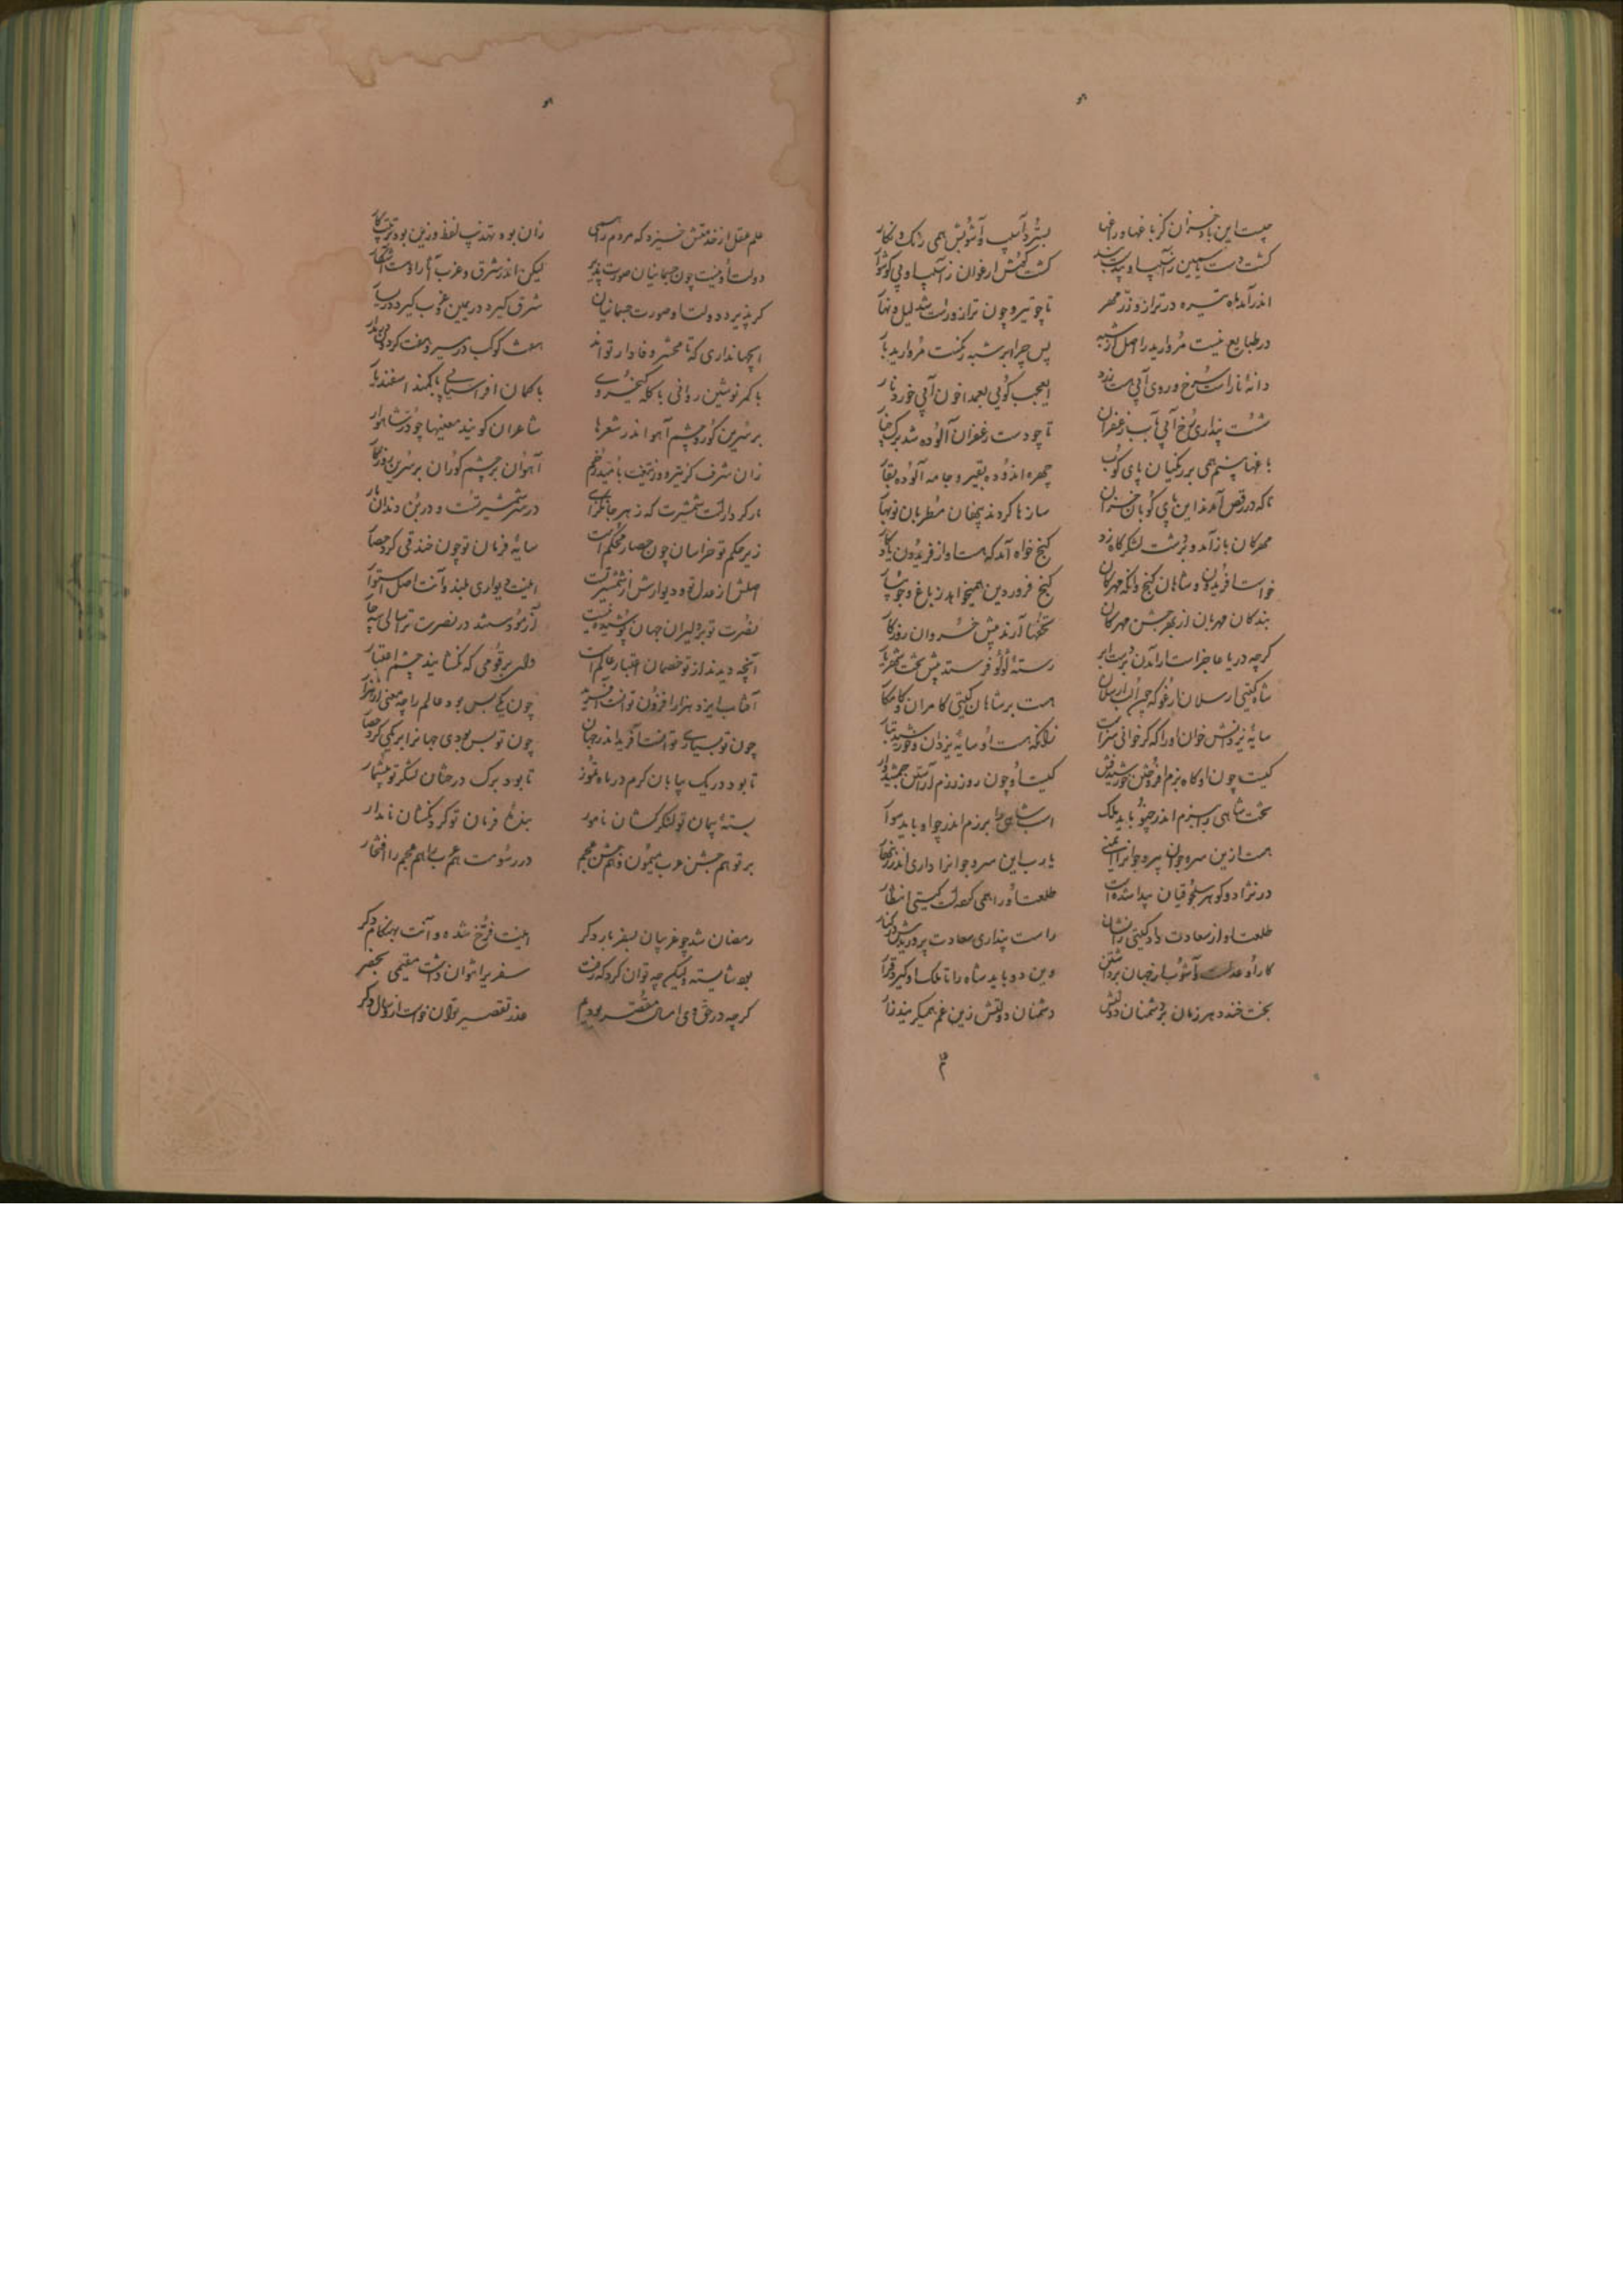 چیست این باد خزان کز باغها و راغها بسترد آسیب و آشوبش همی رنگ و نگار
گشت دست یاسمین ز آسیب او گشت گوش ارغوان ز آسیب او بی گوشوار
اندر آمد ماه تیره در ترازو زر مهر تا چو تیر و چون ترازو راست شد لیل و نهار
در طبایع نیست مروارید را اصل از شبه پس چرا ابر شبه رنگست مروارید بار
دانهٔ نار است سرخ و روی آبی هست زرد ای عجب گویی بعمدا خون آبی خورد نار
شست پنداری رخ آبی بآب زعفران تا چو دست زعفران آلوده شد برگ چنار
باغها بینم همی بر زنگیان پای کوب چهره اندوده بقیر و جامه آلوده بقار
تا که در رقص آمدند این پای کوبان خزان سازها کردند پنهان مطربان نوبهار
مهرگان باز آمد و بر دشت لشکرگاه زد گنج خواه آمد که هست او از فریدون یادگار
خواست افریدون و شاهان گنج وانکه مهرگان گنج فروردین همیخواهد ز باغ و جویبار
بندگان مهربان از بهر جشن مهرگان تحفها آرند پیش خسروان روزگار
گرچه دریا عاجز است از آمدن بر دست ابر رستهٔ لؤلؤ فرستد پیش تخت شهریار
شاه گیتی ارسلان ارغو که چون الب ارسلان هست بر شاهان گیتی کامران و کامکار
سایهٔ یزدانش خوان او را که گر خوانی سزاست زانکه هست او سایهٔ یزدان و خورشید تبار
کیست چون او گاه بزم افروختن خورشیدفش کیست او چون روز رزم آراستن جمشیدوار
تخت شاهی را ببزم اندر چنو باید ملک اسب شاهی را برزم اندر چو او باید سوار
هست ازین سرو جوان پیر و جوان را ایمنی یا رب این سرو جوان را داری اندر زینهار
در نژاد و گوهر سلجوقیان پیدا شده است طلعت او را همی کرده است گیتی انتظار
طلعت او از سعادت داد گیتی را نشان راست پنداری سعادت پروریدش در کنار
کار او عدلست و آشوب از جهان برداشتن وین دو باید شاه را تا ملک او گیرد قرار
بخت خندد هر زمان بر دشمنان دولتش دشمنان دولتش زین غم همیگریند زار
علم عقل از خدمتش خیزد که مردم را همی زان بود تهذیب لفظ و زین بود ترتیب کار
دولت او نیست چون جسمانیان صورت پذیر لیکن اندر شرق و غرب آثار او هست آشکار
گر پذیرد دولت او صورت جسمانیان شرق گیرد در یمین و غرب گیرد در یسار
ای جهانداری که تا محشر وفادار تواند هفت کوکب در مسیر و هفت گردون بر مدار
با کمر نوشین روانی با کله کیخسروی با کمان افراسیابی با کمند اسفندیار
بر سرین گور و چشم آهو اندر شعرها شاعران گویند معنیها چو در شاهوار
زان شرف کز تیر و ز تیغت بامید زخم آهوان بر چشم گوران بر سرین
مار کردارست شمشیرت که زهر جانگزای در سر شمشیر تست و در بن دندان مار
زیر حکم تو خراسان چون حصار محکم است سایهٔ فرمان تو چون خندقی گرد حصار
اصلش از عدل تو و دیوارش از شمشیر تست اینت دیواری بلند و آنت اصل استوار
نصرت تو بر دلیران جهان پوشیده نیست آزمودستند در نصرت ترا سالی سه چار
آنچه دیدند از تو خصمان اعتبار عالم است وای بر قومی که نگشایند چشم اعتبار
آفتاب ایزد هزار افزون توانست آفرید چون یکی بس بود عالم را چه معنی از هزار
چون تو بسیاری توانست آفرید اندر جهان چون تو بس بودی جهانرا بر یکی کرد اختصار
تا بود در ریگ بیابان گرم در ماه تموز تا بود برگ درختان لشکر تو بیشمار
بستهٔ پیمان تو لشکرکشان نامور بندهٔ فرمان تو گردنکشان نامدار
بر تو هم جشن عرب میمون و هم جشن عجم در رسومت هم عرب را هم عجم را افتخار
رمضان شد چو غریبان بسفر بار دگر اینت فرخ شدن و آنت بهنگام دگر
بود شایسته ولیکن چه توان کرد که رفت سفریرا نتوان داشت مقیمی بحضر
گرچه در حق وی امسال مقصر بودیم عذر تقصیر توان خواست ازو سال دگر